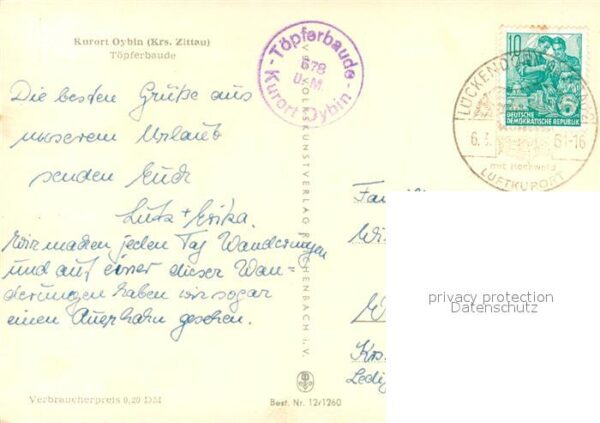 Kurort Oybin (Krs. Zittau)
Töpferbaude
Die besten Grüße aus
unserem Urlaub
senden Euch
Lutz + Erika.
Wir machen jeden Tag Wanderungen
und auf einer dieser Wan-
derungen haben wir sogar
einen Auerhahn gesehen.
Verbraucherpreis 0,20 DM
- Töpferbaude -
678
ü.M.
Kurort Oybin
VOLKSKUNSTVERLAG REICHENBACH i. V.
Best. Nr. 12/1260
10
DEUTSCHE
DEMOKRATISCHE REPUBLIK
LÜCKENDORF
6.
61-16
mit Hochwald
LUFTKURORT
Fam
Krs.
privacy protection
Datenschutz